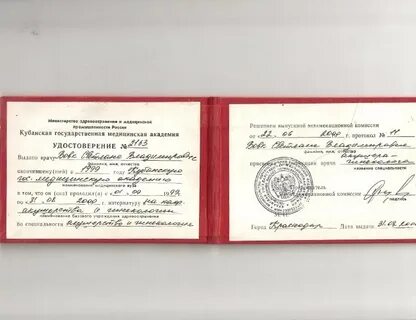 Министерство здравоохранения и медицинской
промышленности России
Кубанская государственная медицинская академия
УДОСТОВЕРЕНИЕ № 2183
Выдано врачу Вовс Светлане Владимировне
фамилия, имя, отчество
окончившему(ей) в 1999 году Кубанскую
гос. медицинскую академию
наименование медицинского вуза
в том, что он (она) проходил(а) с 01 09 1999
по 31 08 2000 г. интернатуру на каф.
акушерства и гинекологии
наименование базового учреждения здравоохранения
по специальности акушерство и гинекология
Решением выпускной экзаменационной комиссии
от 22 06 2000 г. протокол № 11
Вовс Светлане Владимировне
фамилия, имя, отчество
врача акушера-
гинеколога
название специальности
подпись
Город Краснодар
Дата выдачи 31.08